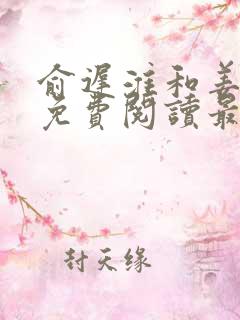 俞遲淮和姜
免費閱讀最
封天缘